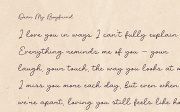 Dear My Boyfriend,
I love you in ways I can't fully explain.
Everything reminds me of you — your
laugh, your touch, the way you looks at m
I miss you more each day, but even when
we're apart, loving you still feels like ho